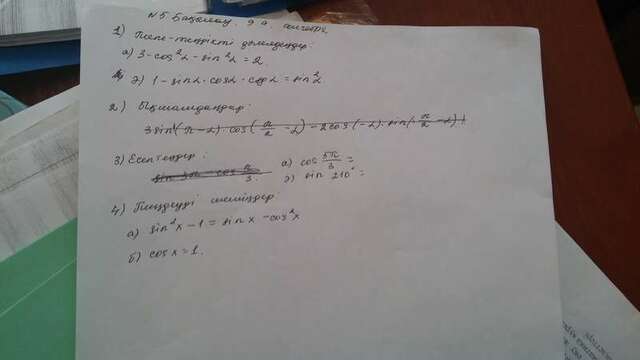 N5. Бақылау. 9 а. алгебра.
1) Тепе-теңдікті дәлелдеңдер:
а) 3 - cos²α - sin²α = 2.
ә) 1 - sinα · cosα · ctgα = sin²α
2) Ықшамдаңдар:
3 sin(π - α) · cos(π/2 - α) - 2cos(-α) · sin(π/2 - α)
3) Есептеңдер: а) cos 5π/3 =
sin 3π - cos π/3. ә) sin 210° =
4) Теңдеуді шешіңдер
а) sin²x - 1 = sinx - cos²x
б) cosx = 1.